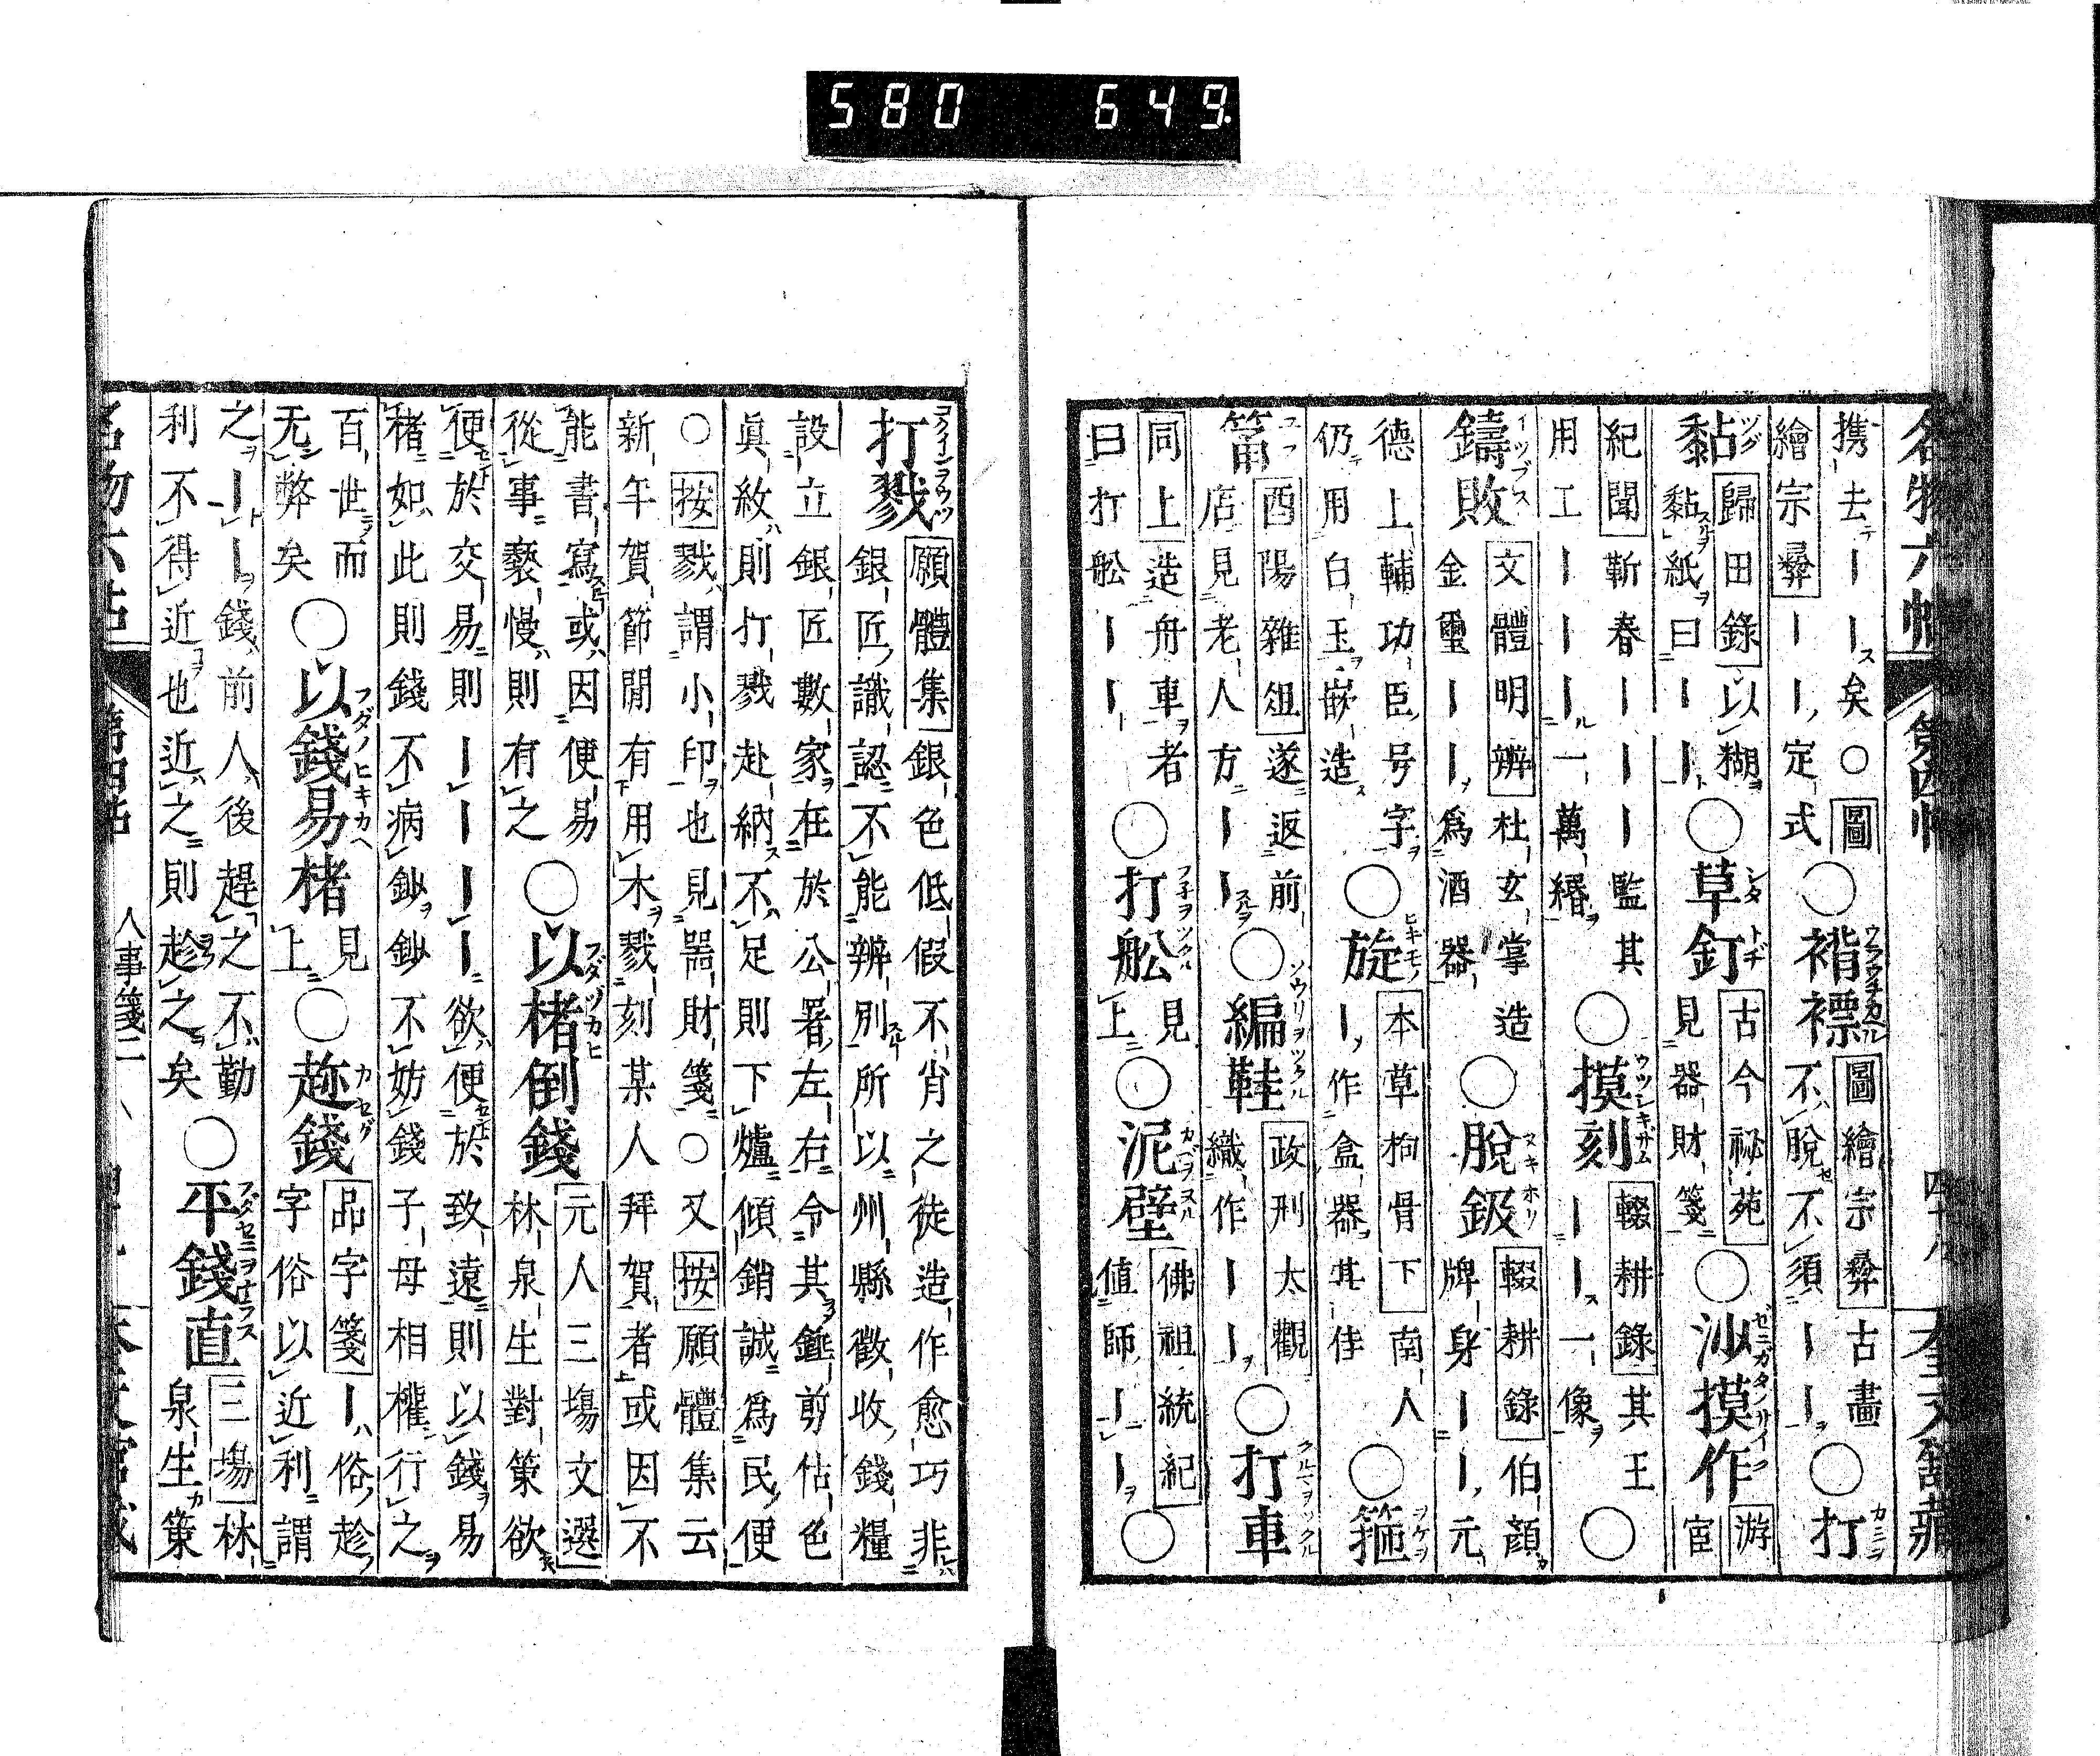 名物六帖 第四帖 四十八 奎文館藏
携去｜｜矣○圖
繪宗彛｜｜定式
○褙褾
圖繪宗彛古畫
不脫不須｜｜
○打
黏
歸田錄以糊
黏紙曰｜｜
○草釘
古今祕苑
見器財箋
○沙摸作
游
宦
紀聞蘄春｜｜｜監其
用工｜｜｜一萬緡
○摸刻
輟耕錄其王
｜｜一像
○
鑄敗
文體明辨杜玄掌造
金璽｜｜爲酒器
○脫鈒
輟耕錄伯顏
牌身｜｜元
德上輔功臣号字
仍用白玉嵌造
○旋
本草枸骨下南人
｜作盒器其佳
○箍
筩
酉陽雜俎遂返前
店見老人方｜｜
○編鞋
政刑太觀
織作｜｜
○打車
同上造舟車者
曰打舩｜｜
○打舩
見
上
○泥壁
佛祖統紀
値師｜｜
○
打戮
願體集銀色低假不肖之徒造作愈巧非
銀匠識認不能辨別所以州縣徵收錢糧
設立銀匠數家在於公署左右令其鏨剪估色
眞紋則打戮赴納不足則下爐傾銷誠爲民便
○按戮謂小印也見器財箋○又按願體集云
新年賀節間有用木戮刻某人拜賀者或因不
能書寫或因便易
從事褻慢則有之
○以楮倒錢
元人三塲文選
林泉生對策欲
便於交易則｜｜｜｜欲便於致遠則以錢易
楮如此則錢不病鈔鈔不妨錢子母相權行之
百世而
无弊矣
○以錢易楮
見
上
○趂錢
品字箋｜俗趁
字俗以近利謂
之｜｜錢前人後趕之不勤
利不得近也近之則趁之矣
○平錢直
三塲林
泉生策
人事箋二